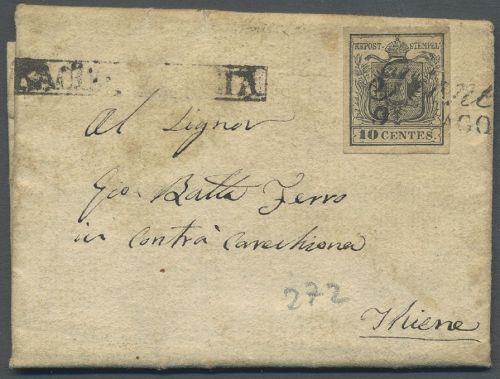 KKPOST-STEMPEL
10 CENTES.
AGO
Al Signor
Gio Batta Ferro
in Contrà
272
Thiene